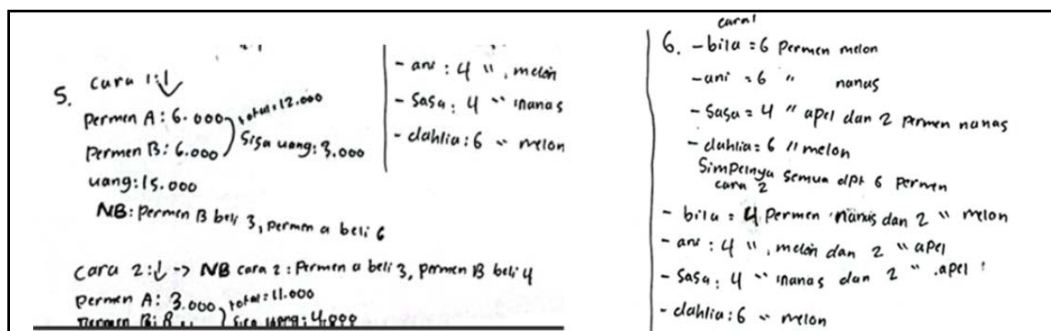 5. cara 1:↓
Permen A: 6.000
Permen B: 6.000
total: 12.000
Sisa uang: 3.000
uang: 15.000
NB: Permen B beli 3, permen a beli 6
Cara 2:↓ -> NB cara 2: Permen a beli 3, permen B beli 4
Permen A: 3.000
total: 11.000
Permen B: 8
Sisa uang: 4.000
- ani : 4 ", melon
- Sasa: 4 " nanas
- dahlia: 6 " melon
cara 1
6. - bila = 6 Permen melon
- ani = 6 " nanas
- Sasa = 4 " apel dan 2 permen nanas
- dahlia = 6 " melon
Simpelnya semua dpt 6 Permen
cara 2
- bila = 4 Permen nanas dan 2 " melon
- ani : 4 ", melon dan 2 " apel
- Sasa: 4 " nanas dan 2 " apel
- dahlia: 6 " melon